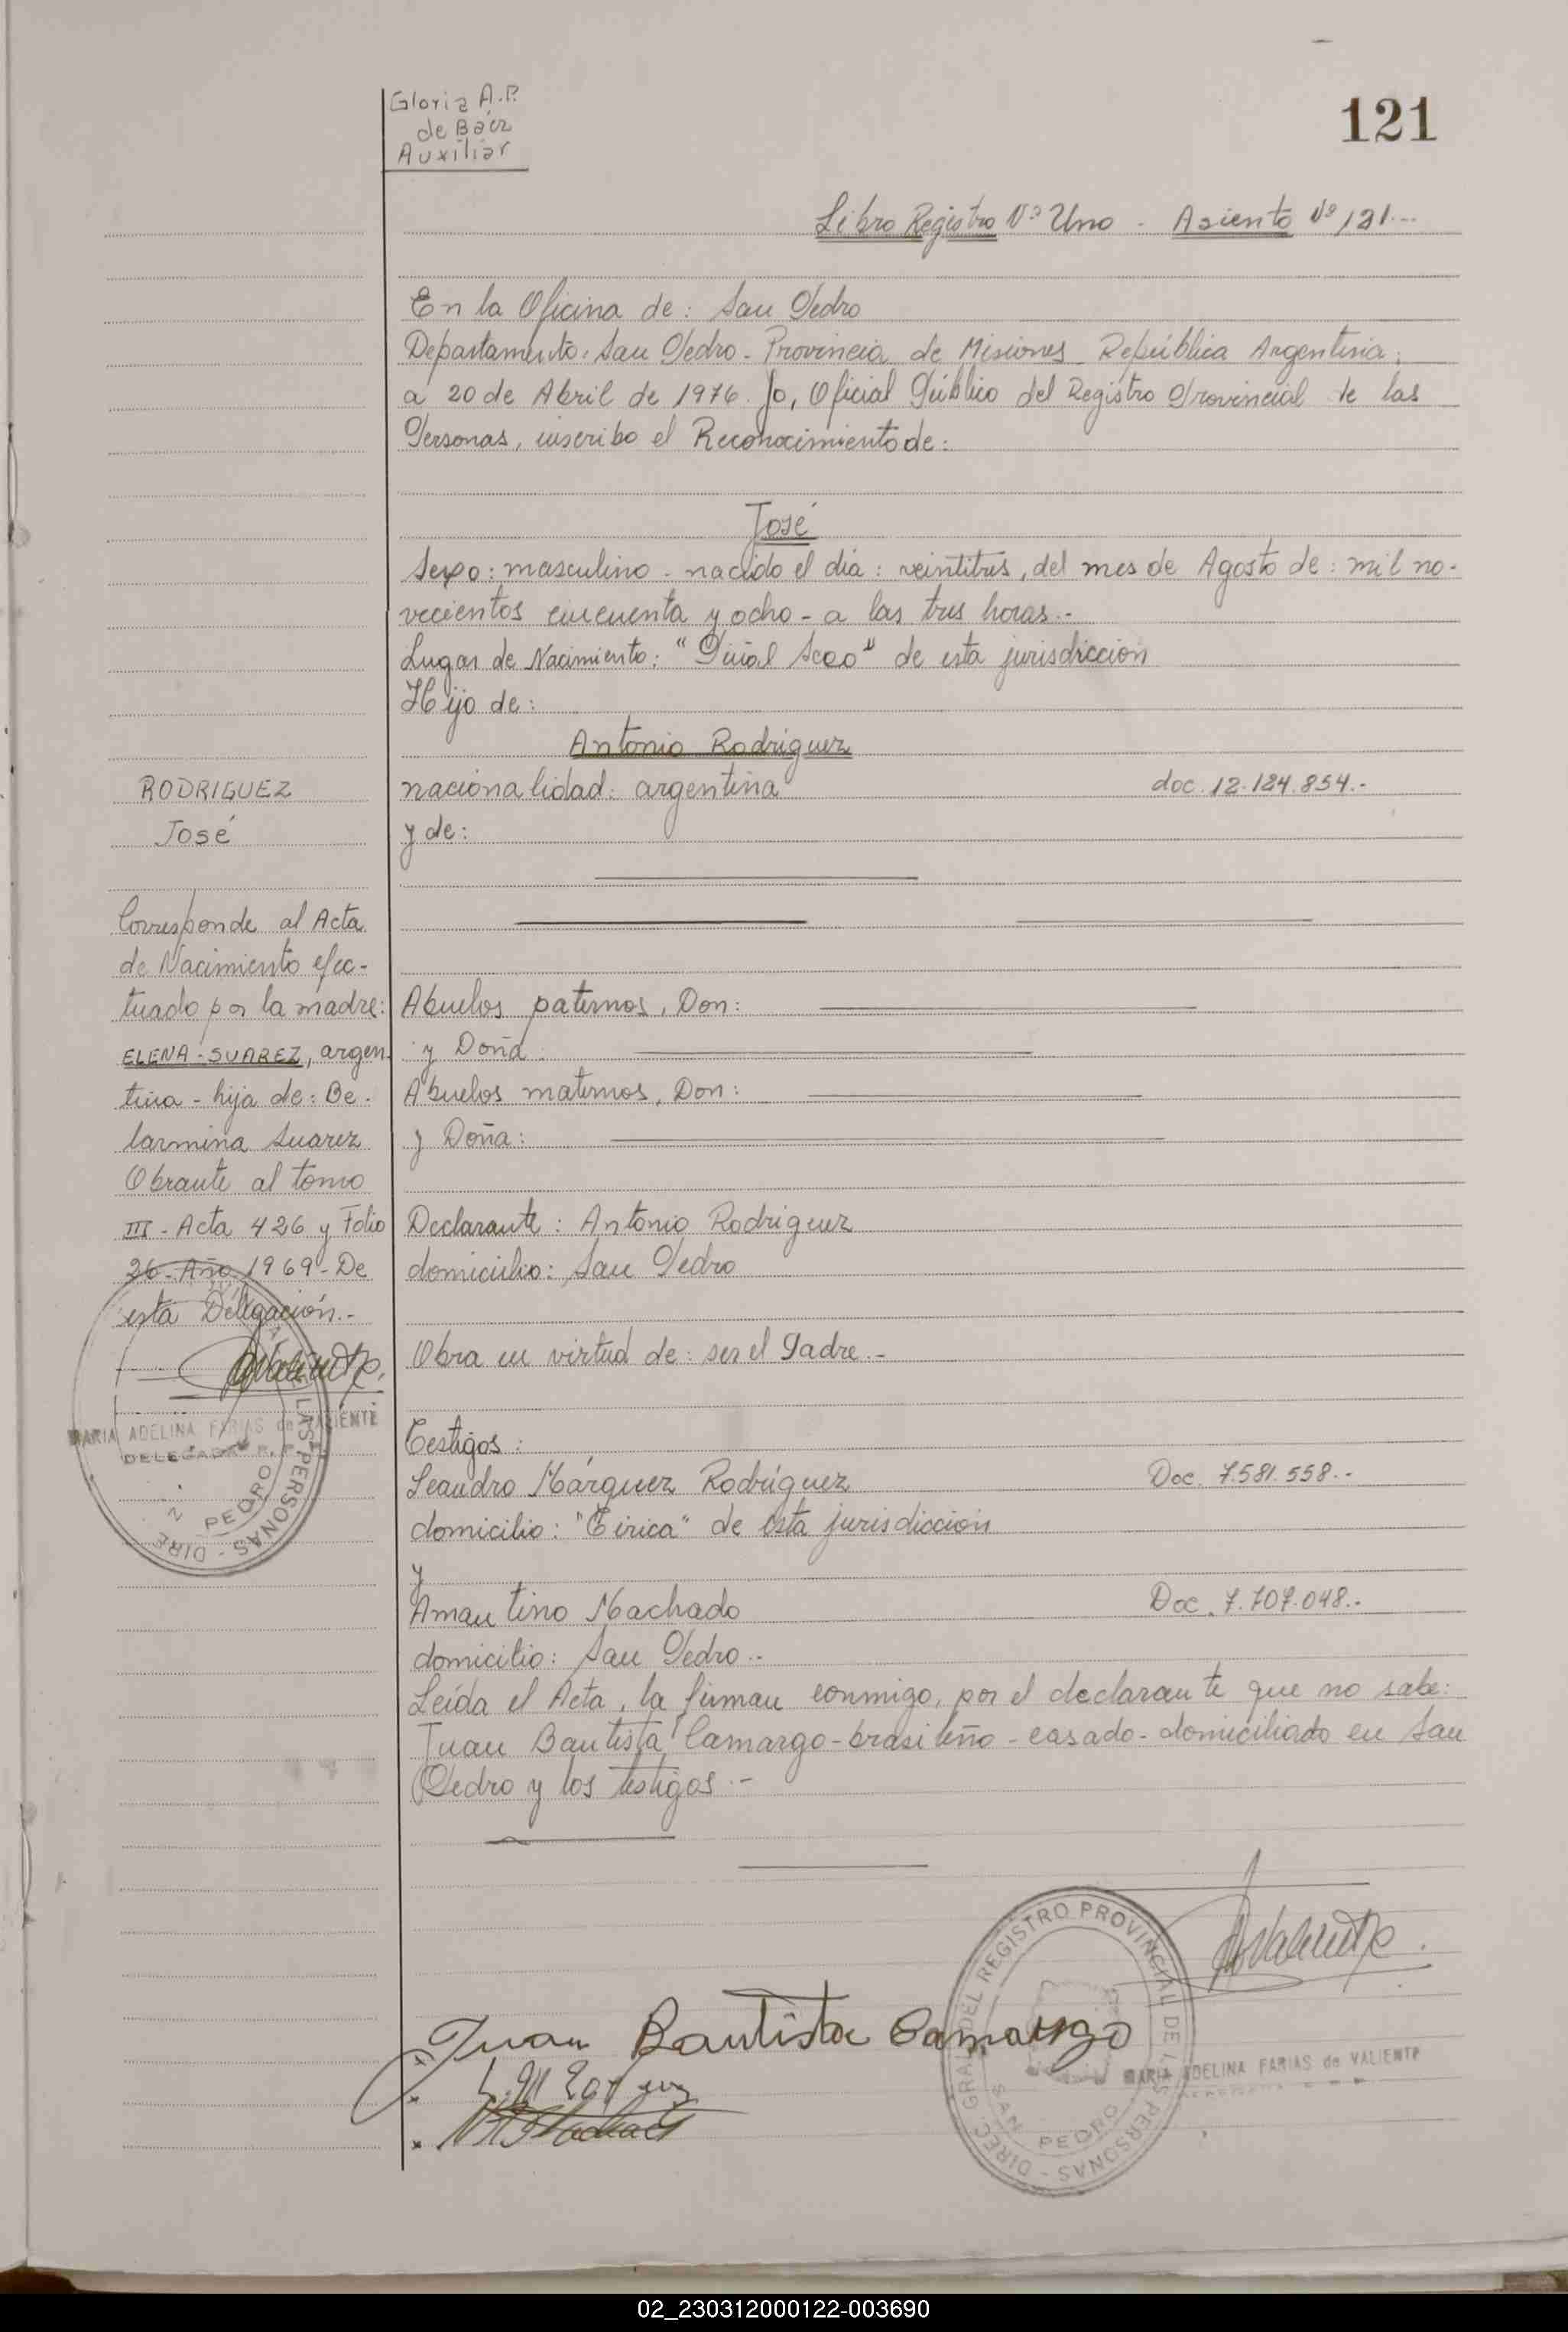 Gloria A.P.
de Báez
Auxiliar
121
Libro Registro Nº Uno - Asiento Nº 121.--
En la Oficina de: San Pedro
Departamento: San Pedro - Provincia de Misiones República Argentina,
a 20 de Abril de 1976. Yo, Oficial Público del Registro Provincial de las
Personas, inscribo el Reconocimiento de:
José
Sexo: masculino - nacido el día: veintitres, del mes de Agosto de: mil no-
vecientos cincuenta y ocho - a las tres horas.-
Lugar de Nacimiento: "Piñal Seco" de esta jurisdicción
Hijo de:
Antonio Rodriguez
nacionalidad: argentina doc. 12.124.854.-
y de:
Abuelos paternos, Don:
y Doña:
Abuelos maternos, Don:
y Doña:
Declarante: Antonio Rodriguez
domicilio: San Pedro
Obra en virtud de: ser el Padre.-
Testigos:
Leandro Márquez Rodríguez Doc. 7.581.558.-
domicilio: "Tirica" de esta jurisdicción
y
Amantino Machado Doc. 7.707.048.-
domicilio: San Pedro.-
Leída el Acta, la firman conmigo, por el declarante que no sabe:
Juan Bautista Camargo - brasileño - casado - domiciliado en San
Pedro y los testigos.-
RODRIGUEZ
José
Corresponde al Acta
de Nacimiento efec-
tuado por la madre:
ELENA-SUAREZ, argen
tina - hija de: Be-
larmina Suarez
Obrante al tomo
III - Acta 426 y Folio
26 - Año 1969 - De
esta Delegación.-
MARIA ADELINA FARIAS de VALIENTE
DELEGADA R. P. P.
LAS PERSONAS - DIRE
PEDRO
AValiente
Juan Bautista Camargo
DIREC. GRAL. DEL REGISTRO PROVINCIAL DE LAS PERSONAS
SAN PEDRO
MARIA ADELINA FARIAS de VALIENTE
02_230312000122-003690